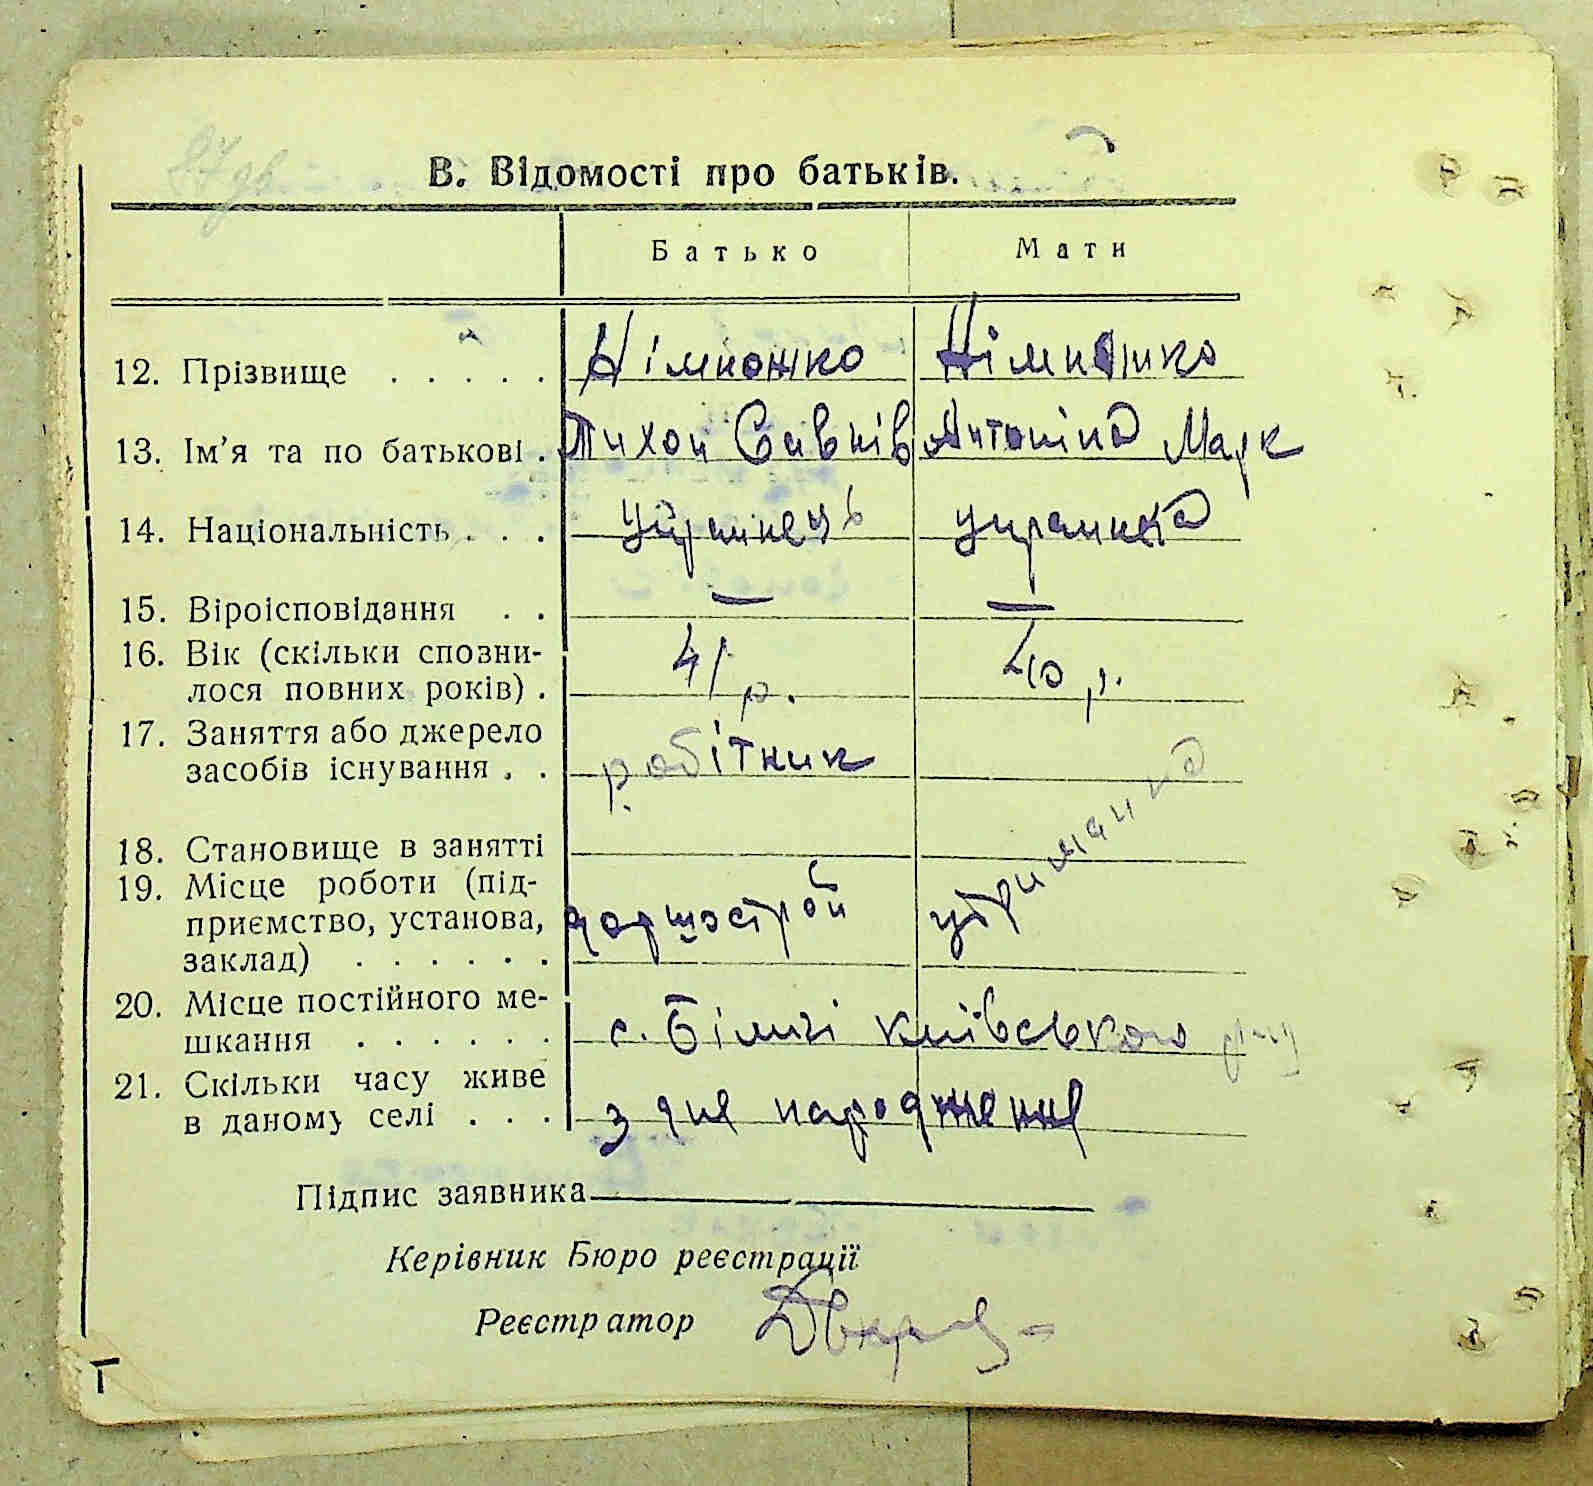 В. Відомості про батьків.
Батько Мати
12. Прізвище . . . . . Німношко Німношко
13. Ім'я та по батькові . Тихон Савків Антоніна Марк
14. Національність . . . Українець українка
15. Віроісповідання . . — —
16. Вік (скільки спозни-
лося повних років) . 41 р. 40 р.
17. Заняття або джерело
засобів існування . . робітник утриманка
18. Становище в занятті
19. Місце роботи (під-
приємство, установа,
заклад) . . . . . .
20. Місце постійного ме-
шкання . . . . . . с. Біличі київського
21. Скільки часу живе
в даному селі . . . з дня народження
Підпис заявника
Керівник Бюро реєстрації
Реєстратор
Т